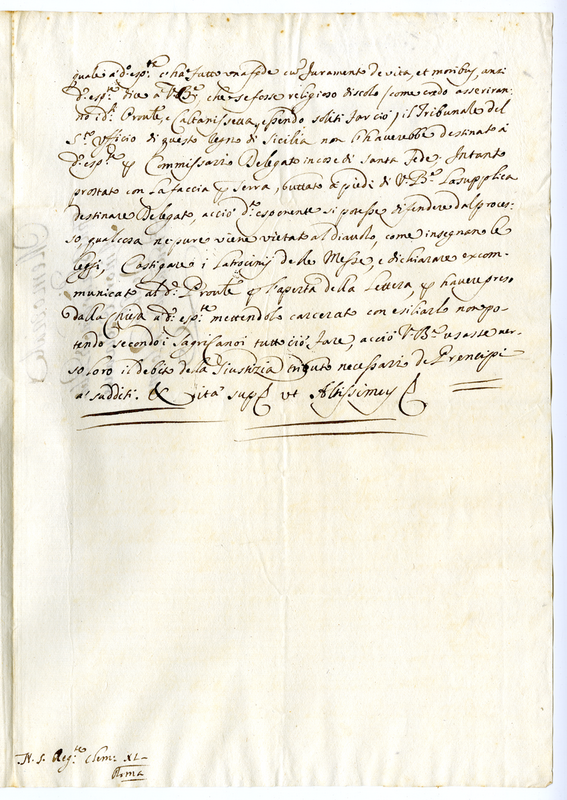 quale a d.º esp.te c'ha fatto una fede con Juramento de vita, et moribus, anzi
d.º esp.te dice a V. B.ne, che se fosse religioso discolo (come credo asseriran-
no id.i Pron.le, e Caltanissetta, essendo soliti farcio) il Tribunale del
S.to Ufficio di questo Regno di Sicilia non l'haverebbe destinato a
d.º esp.te p Commissario Delegato in cose di Santa Fede. Intanto
prostato con la faccia p terra, buttato a piedi di V. B.ne La supplica
destinare Delegato, acciò d.º esponente si potesse difendere dal proces-
so, qual cosa ne pure viene vietata al diavolo, come insegnano le
leggi, Castigare i Latrocinij delle Messe, e dichiarare excom-
municato al d.º Pron.le p l'aperta della Lettera, p havere preso
dalla a d.º esp.te mettendolo carcerato con esiliarlo non po-
tendo secondo i Sagri Canoni tutto ciò fare, acciò V. B.ne usasse ver-
so loro il debito della Giustizia tributo necessario de Prencipi
a' sudditi. & ita sup.t ut Altissimus
N. S. Reg.te Clem: XI
Roma